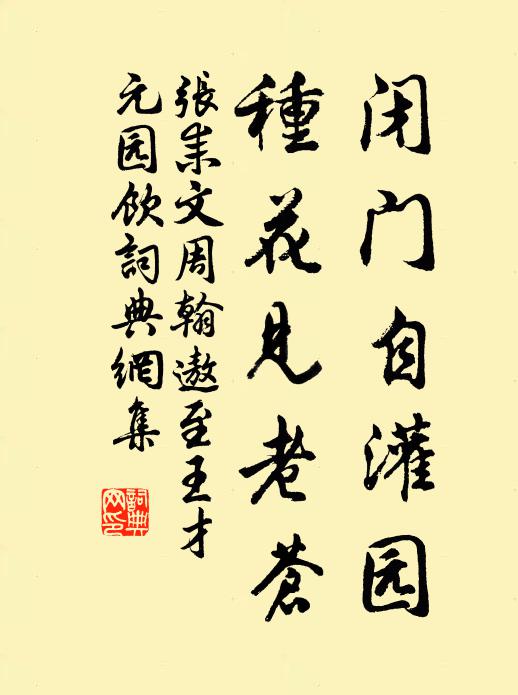 闭门自灌园
種花见老蒼
張耒文周翰遨至王才
元园飲詞典網集
詞典
网印